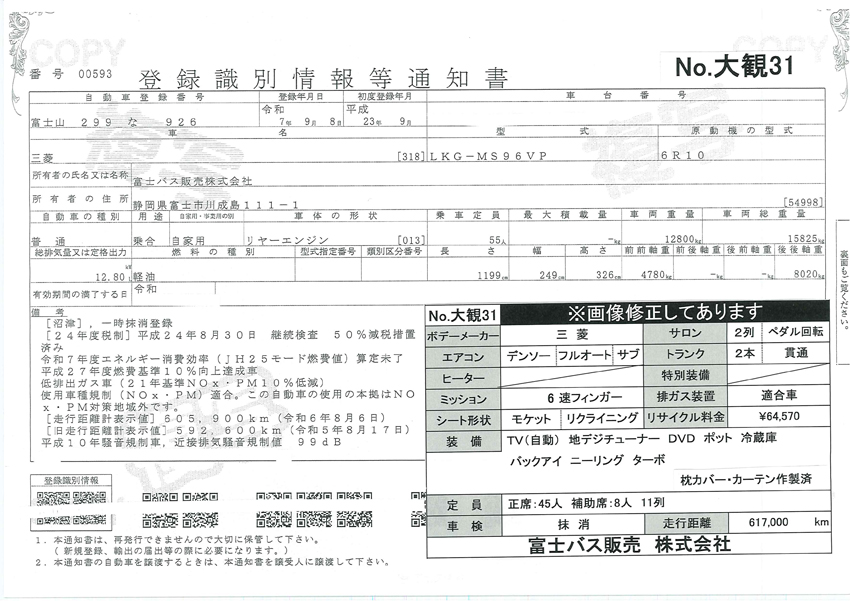 COPY
番号 00593 登録識別情報等通知書
No.大観31
自動車登録番号 登録年月日 初度登録年月 車台番号
富士山 299 な 926 令和 7年 9月 8日 平成 23年 9月
車名 型式 原動機の型式
三菱 [318] LKG-MS96VP 6R10
所有者の氏名又は名称 富士バス販売株式会社
所有者の住所 静岡県富士市川成島111-1 [54998]
自動車の種別 用途 自家用・事業用の別 車体の形状 乗車定員 最大積載量 車両重量 車両総重量
普通 乗合 自家用 リヤーエンジン [013] 55人 -kg 12800kg 15825kg
総排気量又は定格出力 燃料の種別 型式指定番号 類別区分番号 長さ 幅 高さ 前前軸重 前後軸重 後前軸重 後後軸重
12.80 軽油 1199cm 249cm 326cm 4780kg -kg -kg 8020kg
有効期間の満了する日 令和
備考
[沼津],一時抹消登録
[24年度税制]平成24年8月30日 継続検査 50%減税措置
済み
令和7年度エネルギー消費効率(JH25モード燃費値)算定未了
平成27年度燃費基準10%向上達成車
低排出ガス車(21年基準NOx・PM10%低減)
使用車種規制(NOx・PM)適合。この自動車の使用の本拠はNO
x・PM対策地域外です。
[走行距離計表示値]605,900km(令和6年8月6日)
[旧走行距離計表示値]592,600km(令和5年8月17日)
平成10年騒音規制車,近接排気騒音規制値 99dB
裏面もご覧ください。
No.大観31 ※画像修正してあります
ボデーメーカー 三菱 サロン 2列 ペダル回転
エアコン デンソー フルオート サブ トランク 2本 貫通
ヒーター 特別装備
ミッション 6速フィンガー 排ガス装置 適合車
シート形状 モケット リクライニング リサイクル料金 ¥64,570
装備 TV(自動) 地デジチューナー DVD ポット 冷蔵庫
バックアイ ニーリング ターボ
枕カバー・カーテン作製済
定員 正席:45人 補助席:8人 11列
車検 抹消 走行距離 617,000 km
富士バス販売 株式会社
登録識別情報
1.本通知書は、再発行できませんので大切に保管して下さい。
(新規登録、輸出の届出等の際に必要になります。)
2.本通知書の自動車を譲渡するときは、本通知書を譲受人に譲渡して下さい。